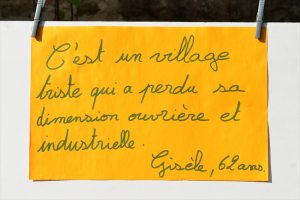 C'est un village
triste qui a perdu sa
dimension ouvrière et
industrielle.
Gisèle, 62 ans.